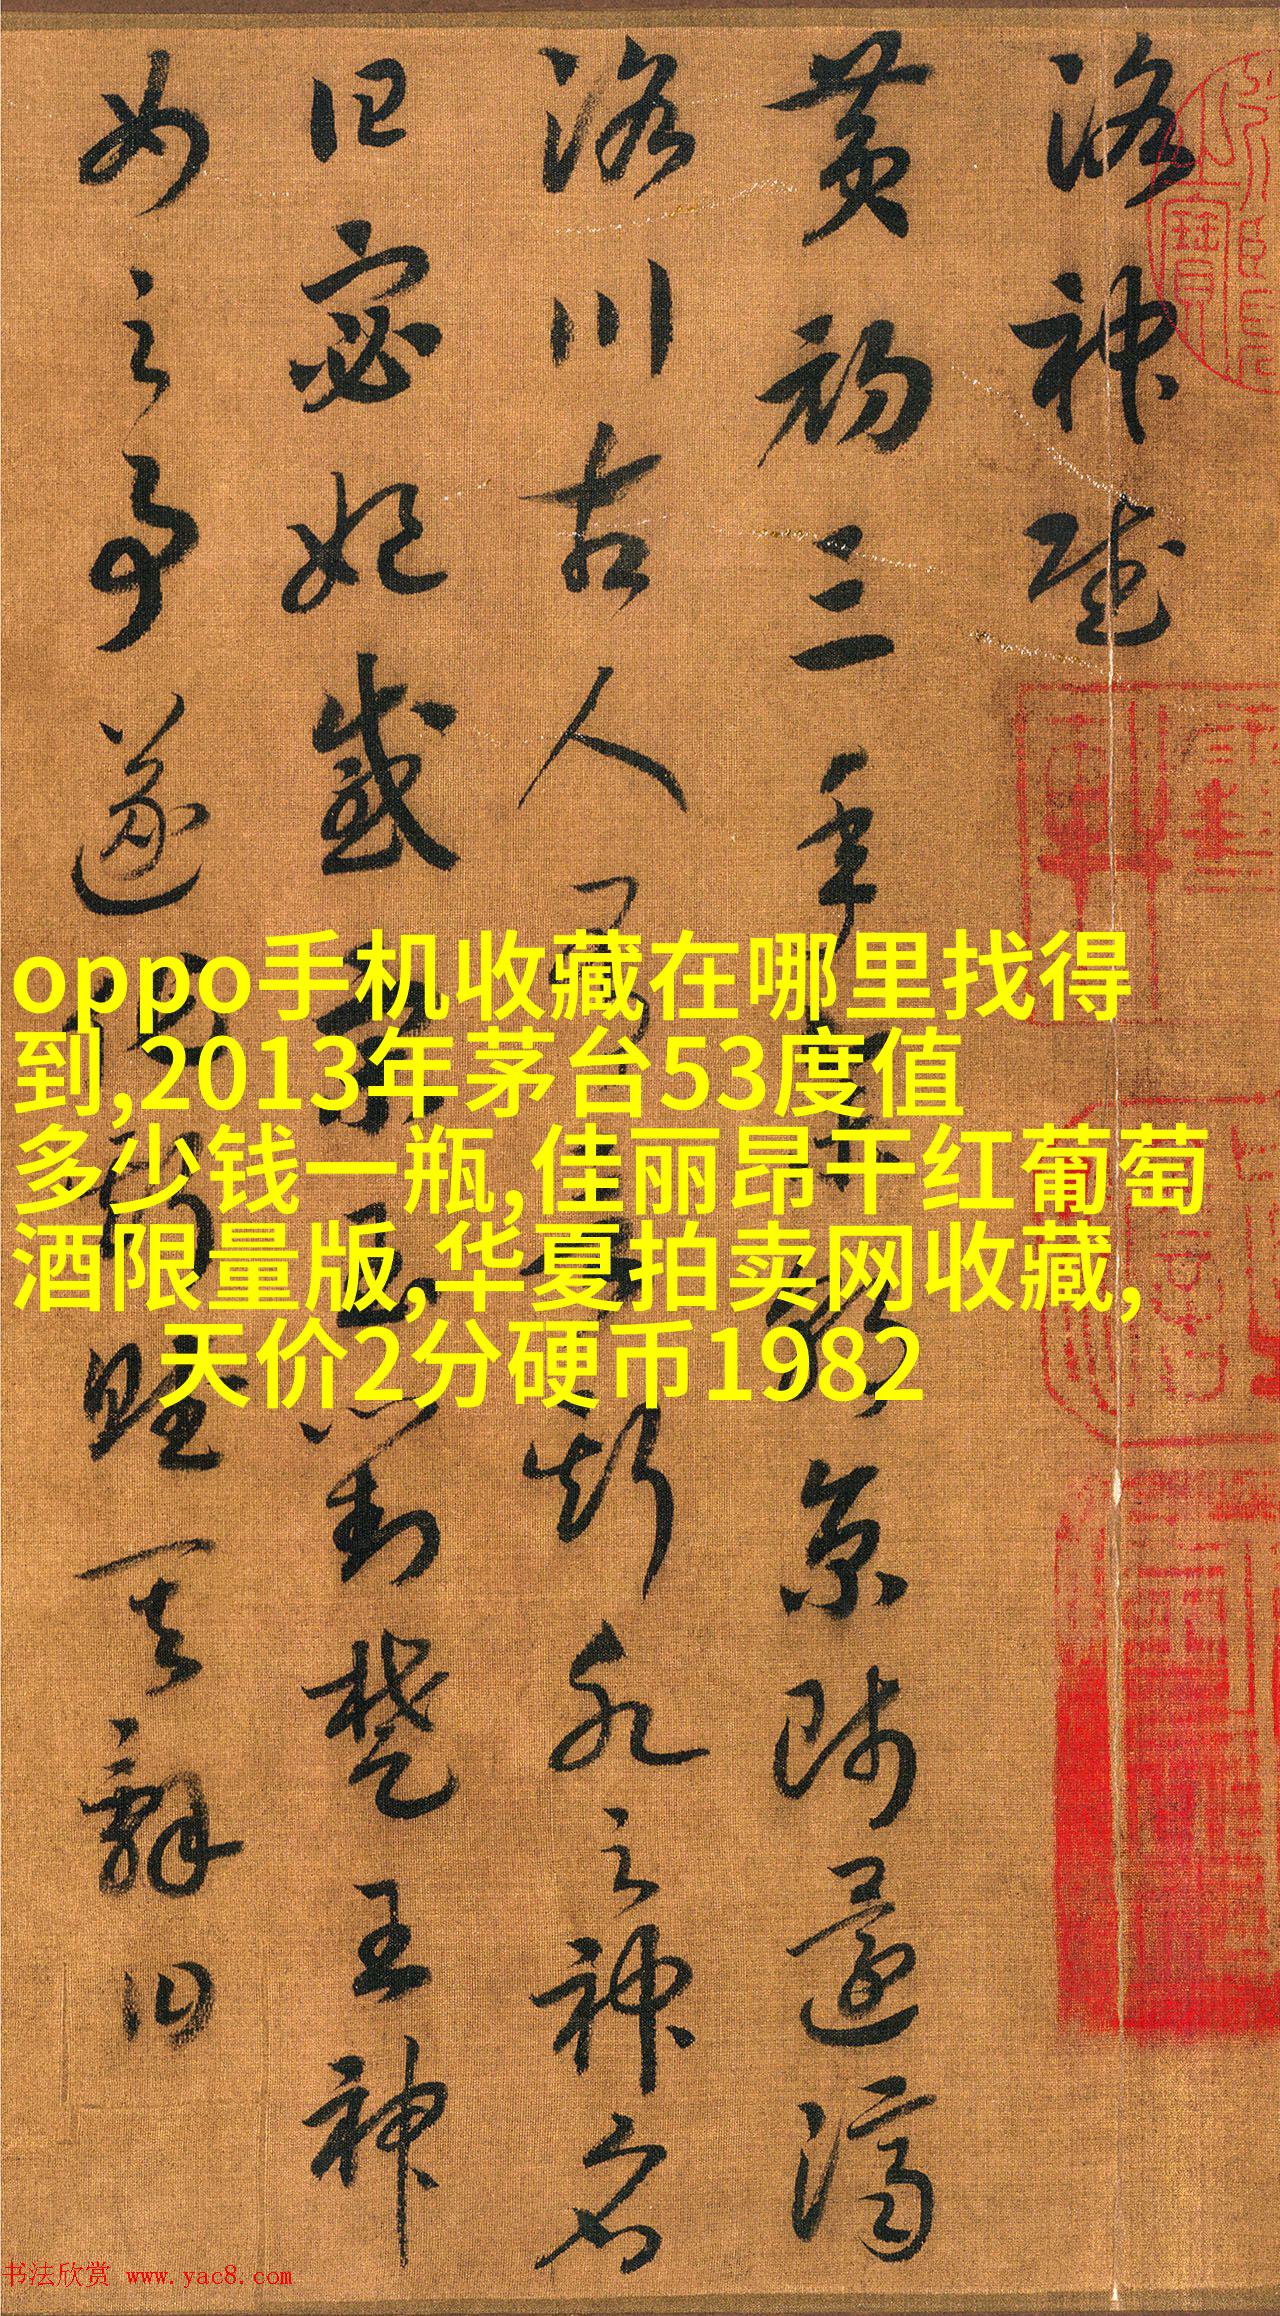 洛神賦
黄初三年京師還濟
洛川古人有斯水之神名
曰宓妃感宋玉對楚王神
女之事遂作斯賦其辭曰
oppo手机收藏在哪里找得
到,2013年茅台53度值
多少钱一瓶,佳丽昂干红葡萄
酒限量版,华夏拍卖网收藏,
天价2分硬币1982
书法欣赏 www.yac8.com